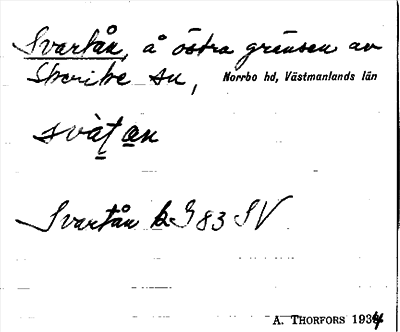 Svartån, å östra gränsen av
Skerike sn, Norrbo hd, Västmanlands län
svàt̲ a̲n
Svartån k. J 83 SV
A. THORFORS 1934